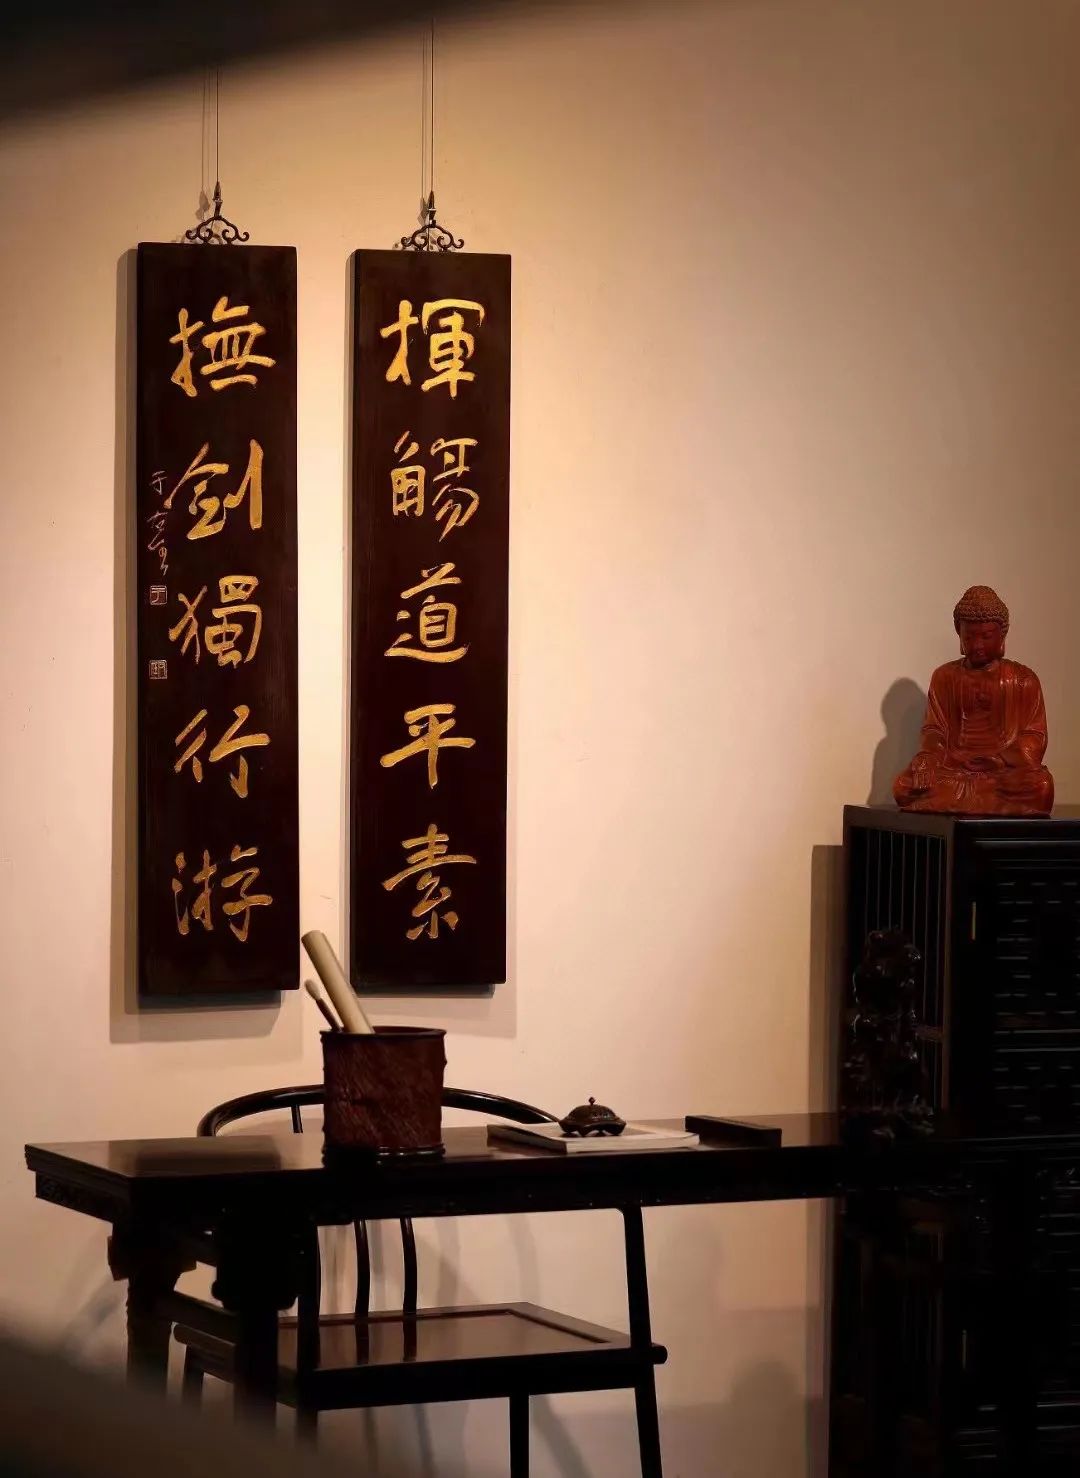 揮觴道平素
撫劍獨行游
于右任